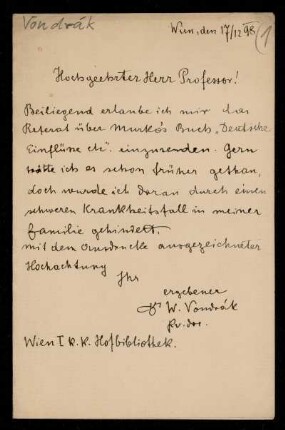 Vondrák
Wien, den 17/12 98
(1
Hochgeehrter Herr Professor!
Beiliegend erlaube ich mir das
Referat über Murko's Buch „Deutsche
Einflüsse etc." einzusenden. Gern
hätte ich es schon früher gethan,
doch wurde ich daran durch einen
schweren Krankheitsfall in meiner
Familie gehindert.
Mit dem Ausdrucke ausgezeichneter
Hochachtung
Ihr
ergebener
Dr W. Vondrák
Pr. doc.
Wien I k. k. Hofbibliothek.